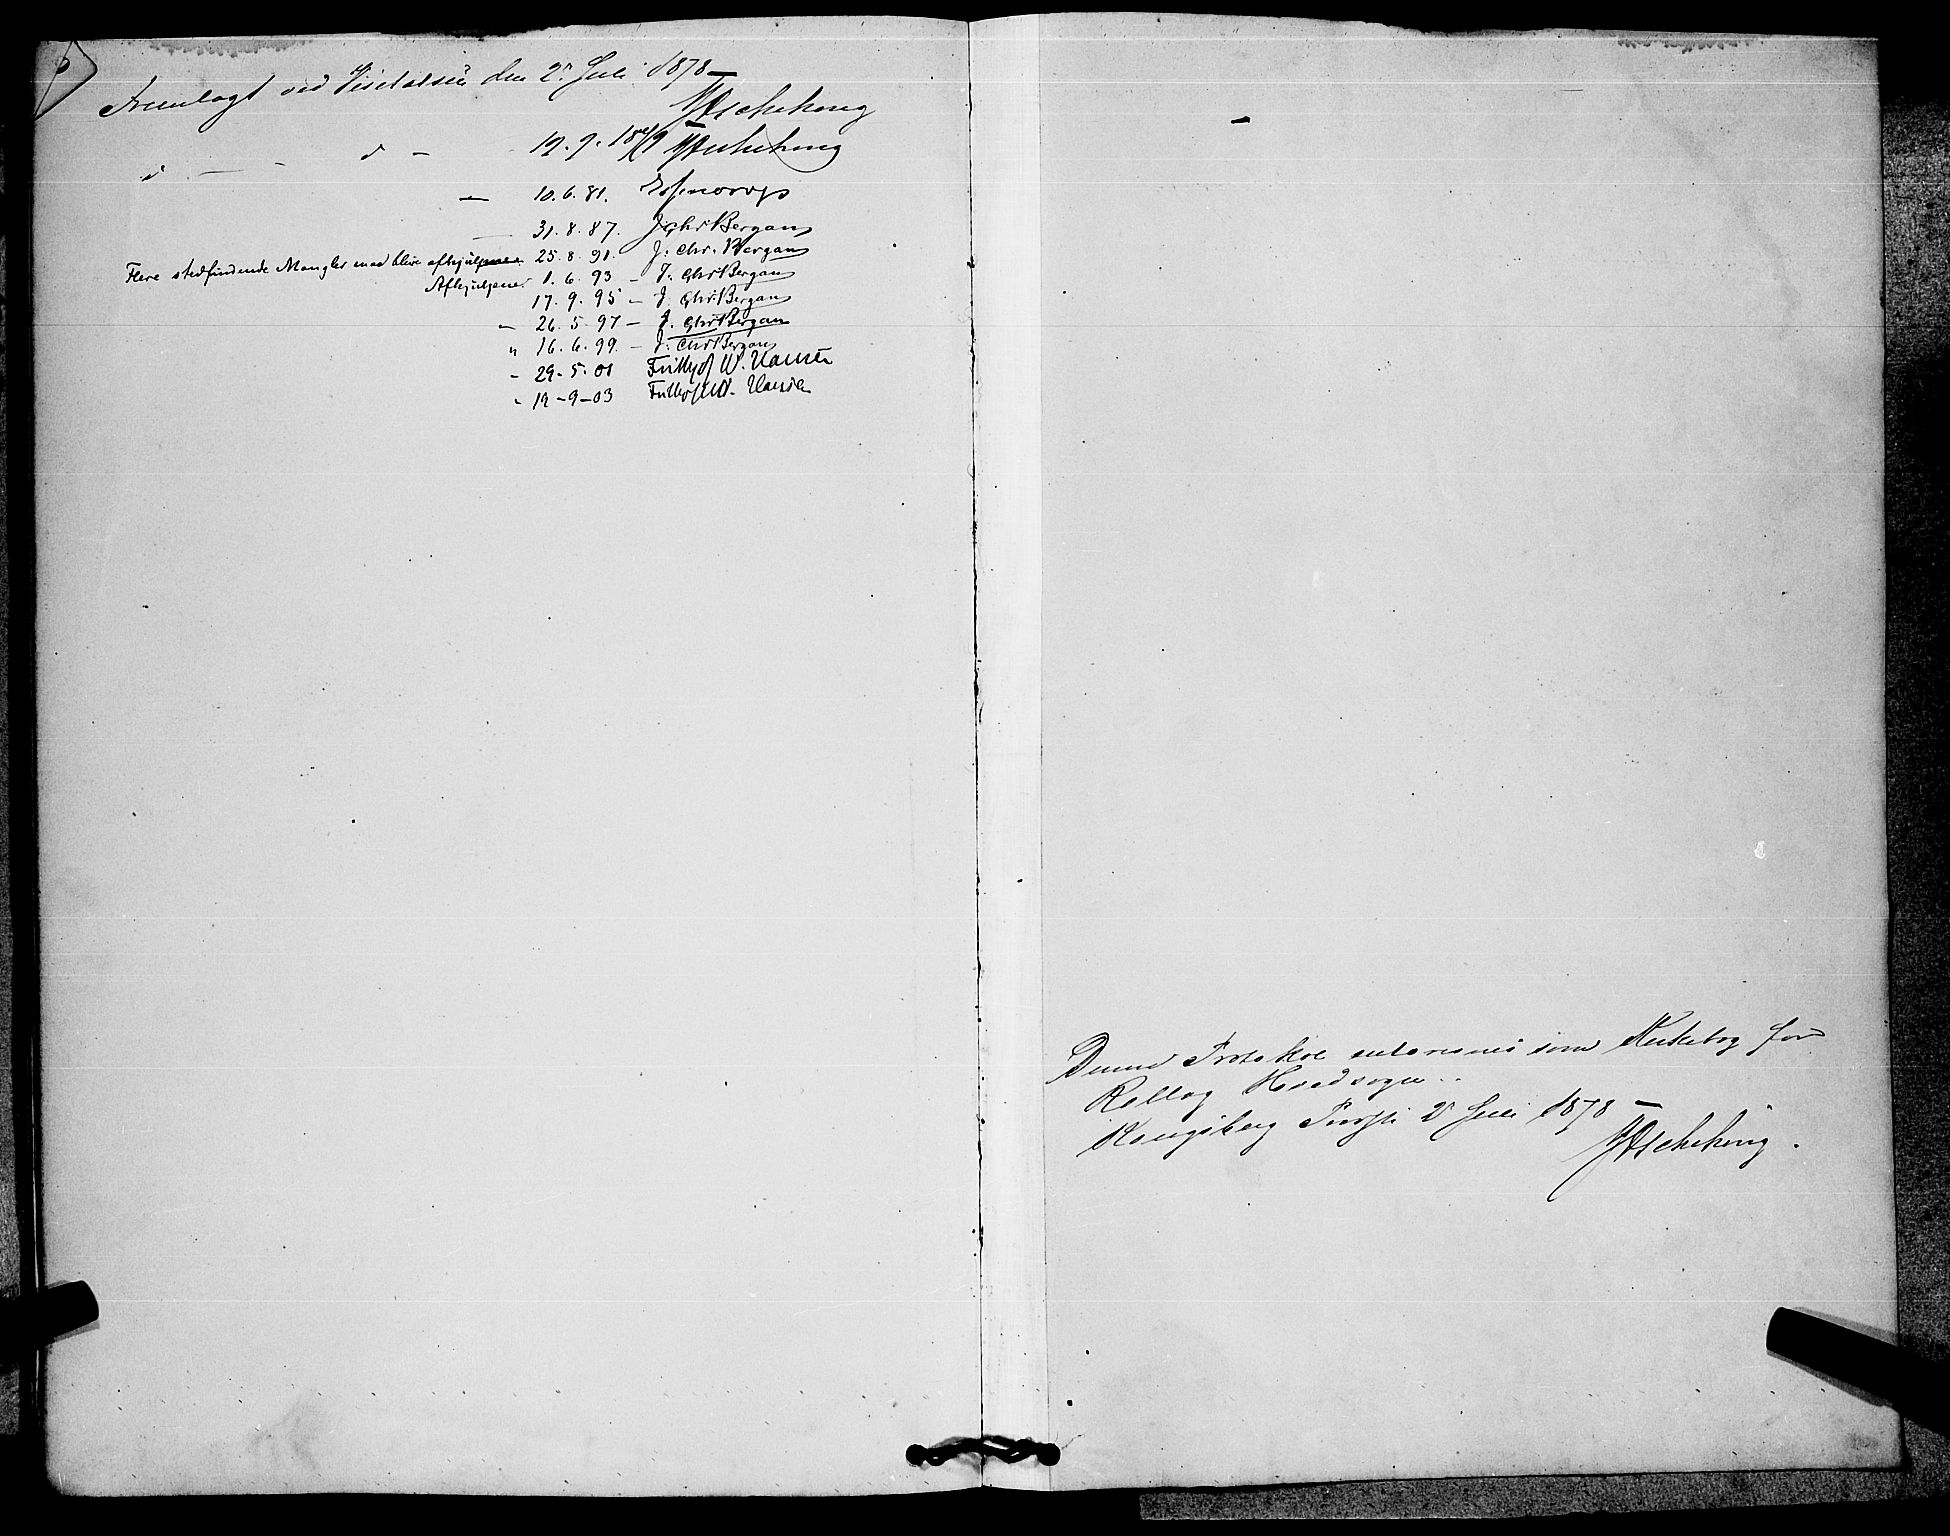 Fremlagt ved Visitatsen den 2 Juli 1878 –
H Aschehoug
d — d – 12.9.1879 H Aschehoug
— 10.6.81.
— 31.8.87. J. Chr Bergan
Flere stedfindende Mangler maa blive afhjulpne 25.8.91. J. Chr. Bergan
Afhjulpne. 1.6.93 – J. Chr Bergan
17.9.95 – J. Chr. Bergan
– 26.5.97 – J. Chr Bergan
" 16.6.99. – J. Chr Bergan
- 29-5.01 Frithjof W. Hansen
- 12-9-03 Frithjof W. Hansen
Denne Protokol autoriseres som Kirkebog for
Rollag Hovedsogn..
Kongsberg Provsti 2 Juli 1878 –
H Aschehoug.